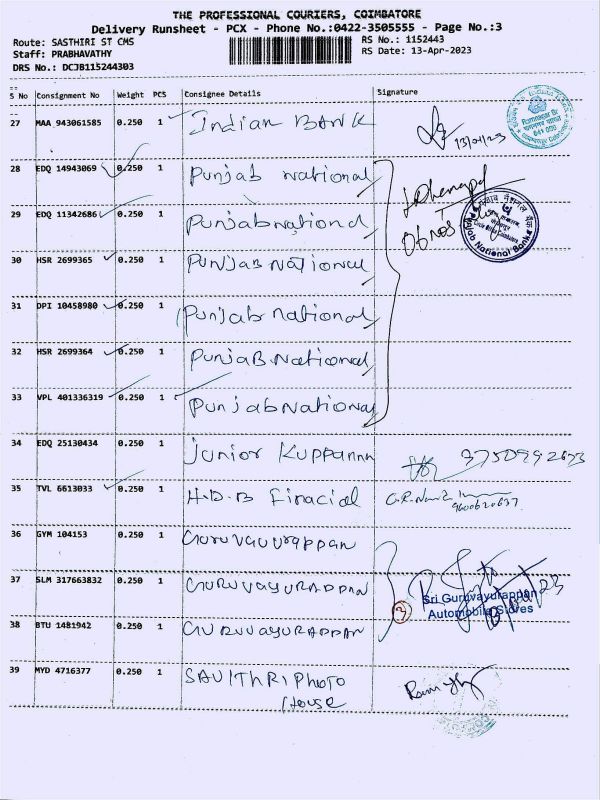 THE PROFESSIONAL COURIERS, COIMBATORE
Delivery Runsheet - PCX - Phone No.:0422-3505555 - Page No.:3
Route: SASTHIRI ST CMS RS No.: 1152443
Staff: PRABHAVATHY RS Date: 13-Apr-2023
DRS No.: DCJB115244303
S No Consignment No Weight PCS Consignee Details Signature
27 MAA 943061585 0.250 1 Indian BANK 13/04/23
28 EDQ 14943069 0.250 1 Punjab national
29 EDQ 11342686 0.250 1 Punjab national
30 HSR 2699365 0.250 1 Punjab National
31 DPI 10458980 0.250 1 Punjab national
32 HSR 2699364 0.250 1 Punjab National
33 VPL 401336319 0.250 1 Punjab National
Punjab National Bank
34 EDQ 25130434 0.250 1 Junior Kuppanna
35 TVL 6613033 0.250 1 H.D.B Finacial 9600620637
36 GYM 104153 0.250 1 Guruvauurappan
37 SLM 317663832 0.250 1 GURUVAYURAPPAN
3 Sri Guruvayurappan
Automobile Stores
38 BTU 1481942 0.250 1 GURUVAYURAPPAN
39 MYD 4716377 0.250 1 SAVITHRI PHOTO
House